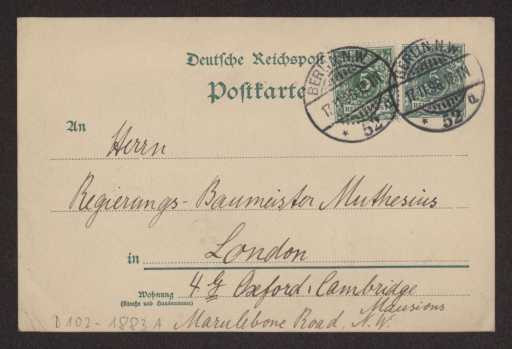 Deutsche Reichspost
Postkarte
BERLIN, N.W.
52
a
BERLIN, N.W.
52
a
An
Herrn
Regierungs-Baumeister Muthesius
in London
Wohnung
(Straße und Hausnummer)
4 g Oxford & Cambridge
Mansions
Marylebone Road, N.W.
D 102-1883 A